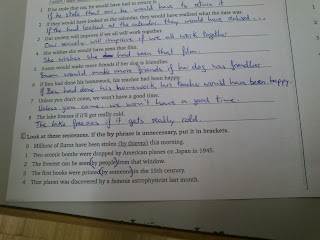 1 If he stole that car, he would have had to return it.
If he stole that car, he would have to return it
2 If they would have looked at the calendar, they would have realised what the date was.
If the had looked at the calendar, they would have realised ...
3 Our society will improve if we all will work together.
Our society will improve if we all work together
4 She wishes she would have seen that film.
She wishes she had seen that film.
5 Susan would make more friends if her dog is friendlier.
Susan would make more friends if her dog was friendlier
6 If Ben had done his homework, his teacher had been happy.
If Ben had done his homework, his teacher would have been happy.
7 Unless you don't come, we won't have a good time.
Unless you come, we won't have a good time.
8 The lake freezes if it'll get really cold.
The lake freezes if it gets really cold.
Look at these sentences. If the by phrase is unnecessary, put it in brackets.
0 Millions of Euros have been stolen (by thieves) this morning.
1 Two atomic bombs were dropped by American planes on Japan in 1945.
2 The Everest can be seen (by people) from that window.
3 The first books were printed (by someone) in the 15th century.
4 That planet was discovered by a famous astrophysicist last month.